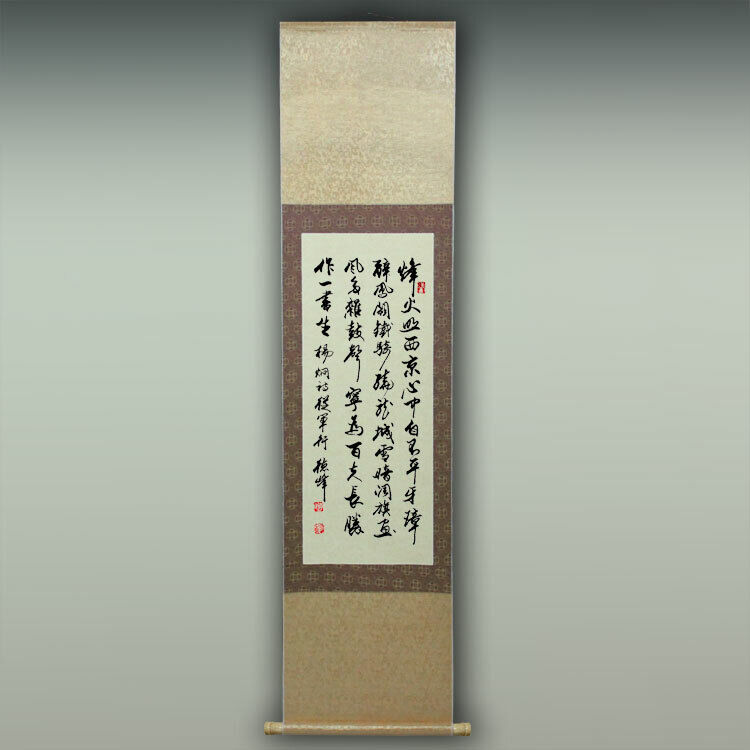 烽火照西京心中自不平牙璋
辭鳳闕鐵騎繞龍城雪暗凋旗畫
風多雜鼓聲寧為百夫長勝
作一書生 楊炯詩從軍行 德峰